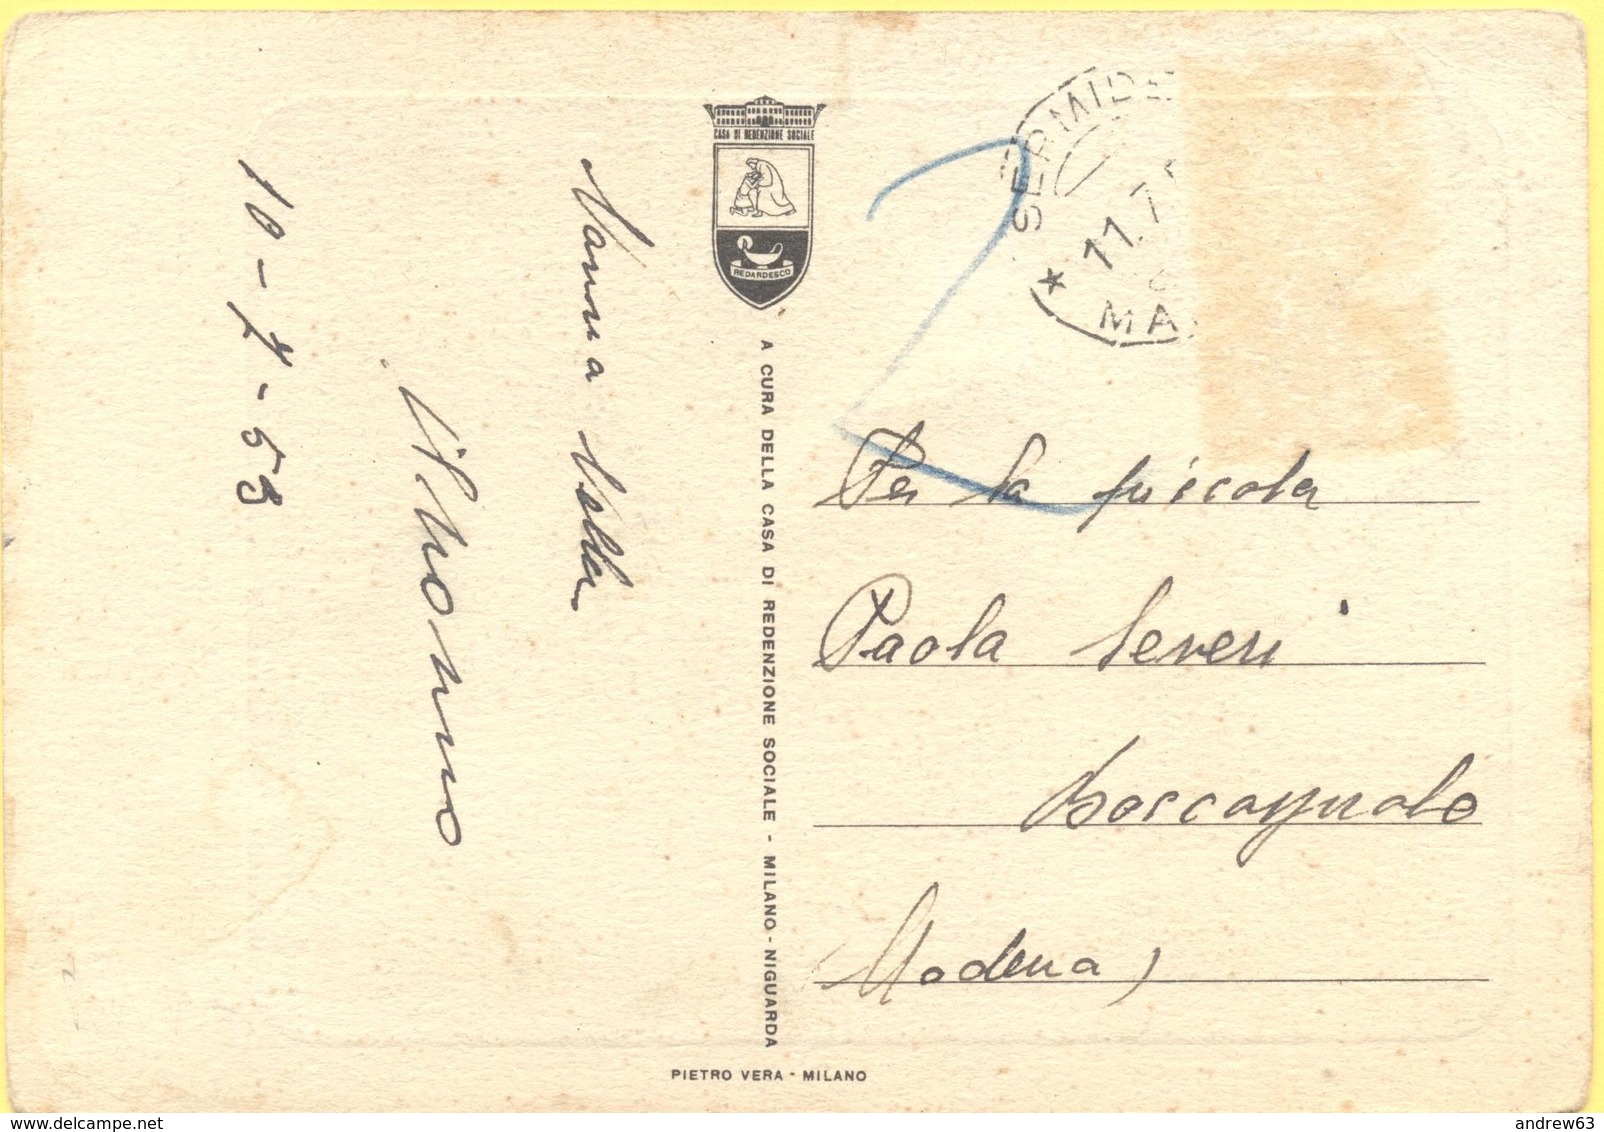 10-7-53
Nonna Stella
CASA DI REDENZIONE SOCIALE
REDARDESCO
A CURA DELLA CASA DI REDENZIONE SOCIALE - MILANO - NIGUARDA
PIETRO VERA - MILANO
SERMIDE
* 11.7.
MA
Per la piccola
Paola Severi
Moscagnolo
(Modena)
andrew63